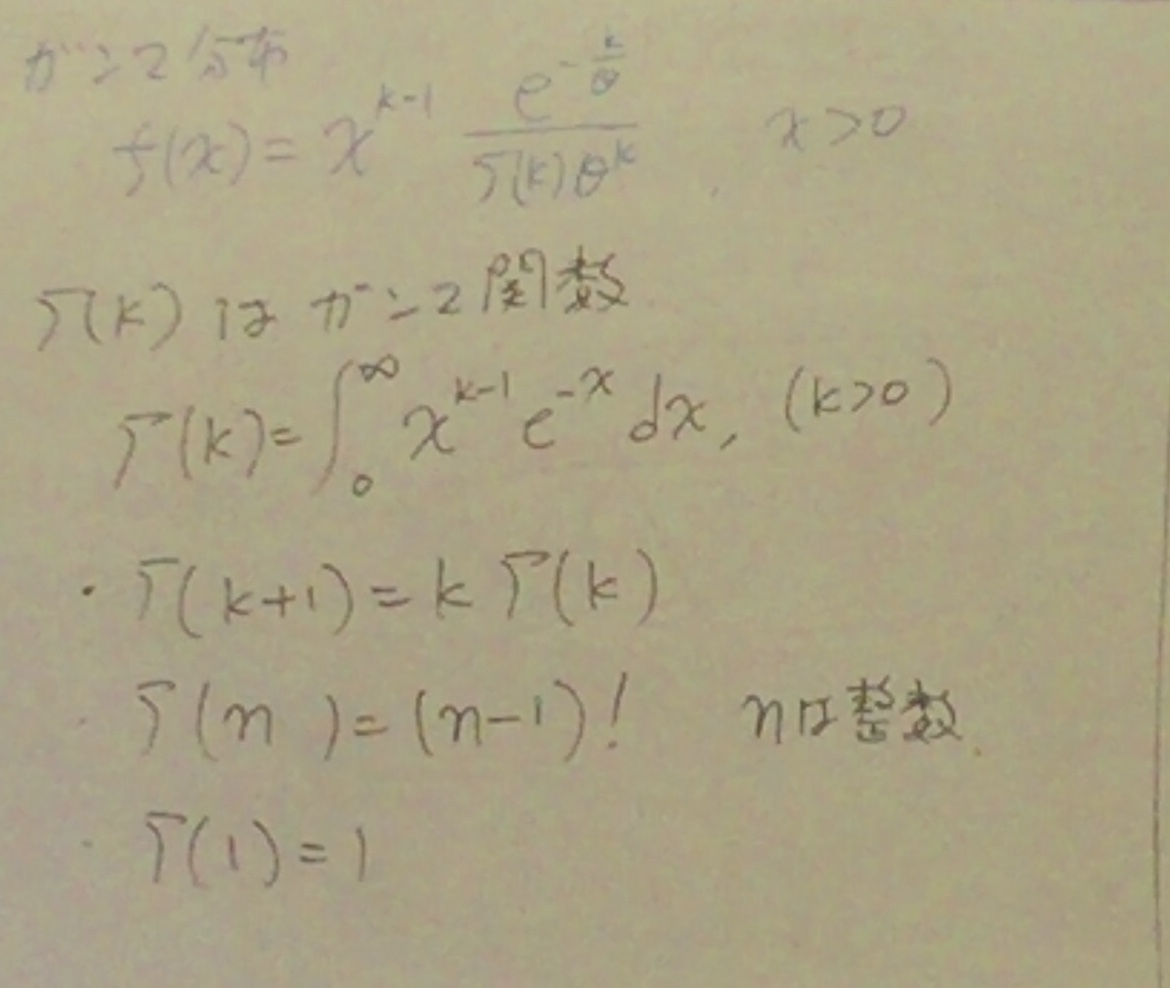 ガンマ分布
f(x) = x^{k-1} \frac{e^{-\frac{k}{θ}}}{Γ(k)θ^k} x>0
Γ(k) は ガンマ関数
Γ(k) = ∫_0^∞ x^{k-1} e^{-x} dx, (k>0)
・Γ(k+1) = k Γ(k)
・Γ(n) = (n-1)! nは整数
・Γ(1) = 1